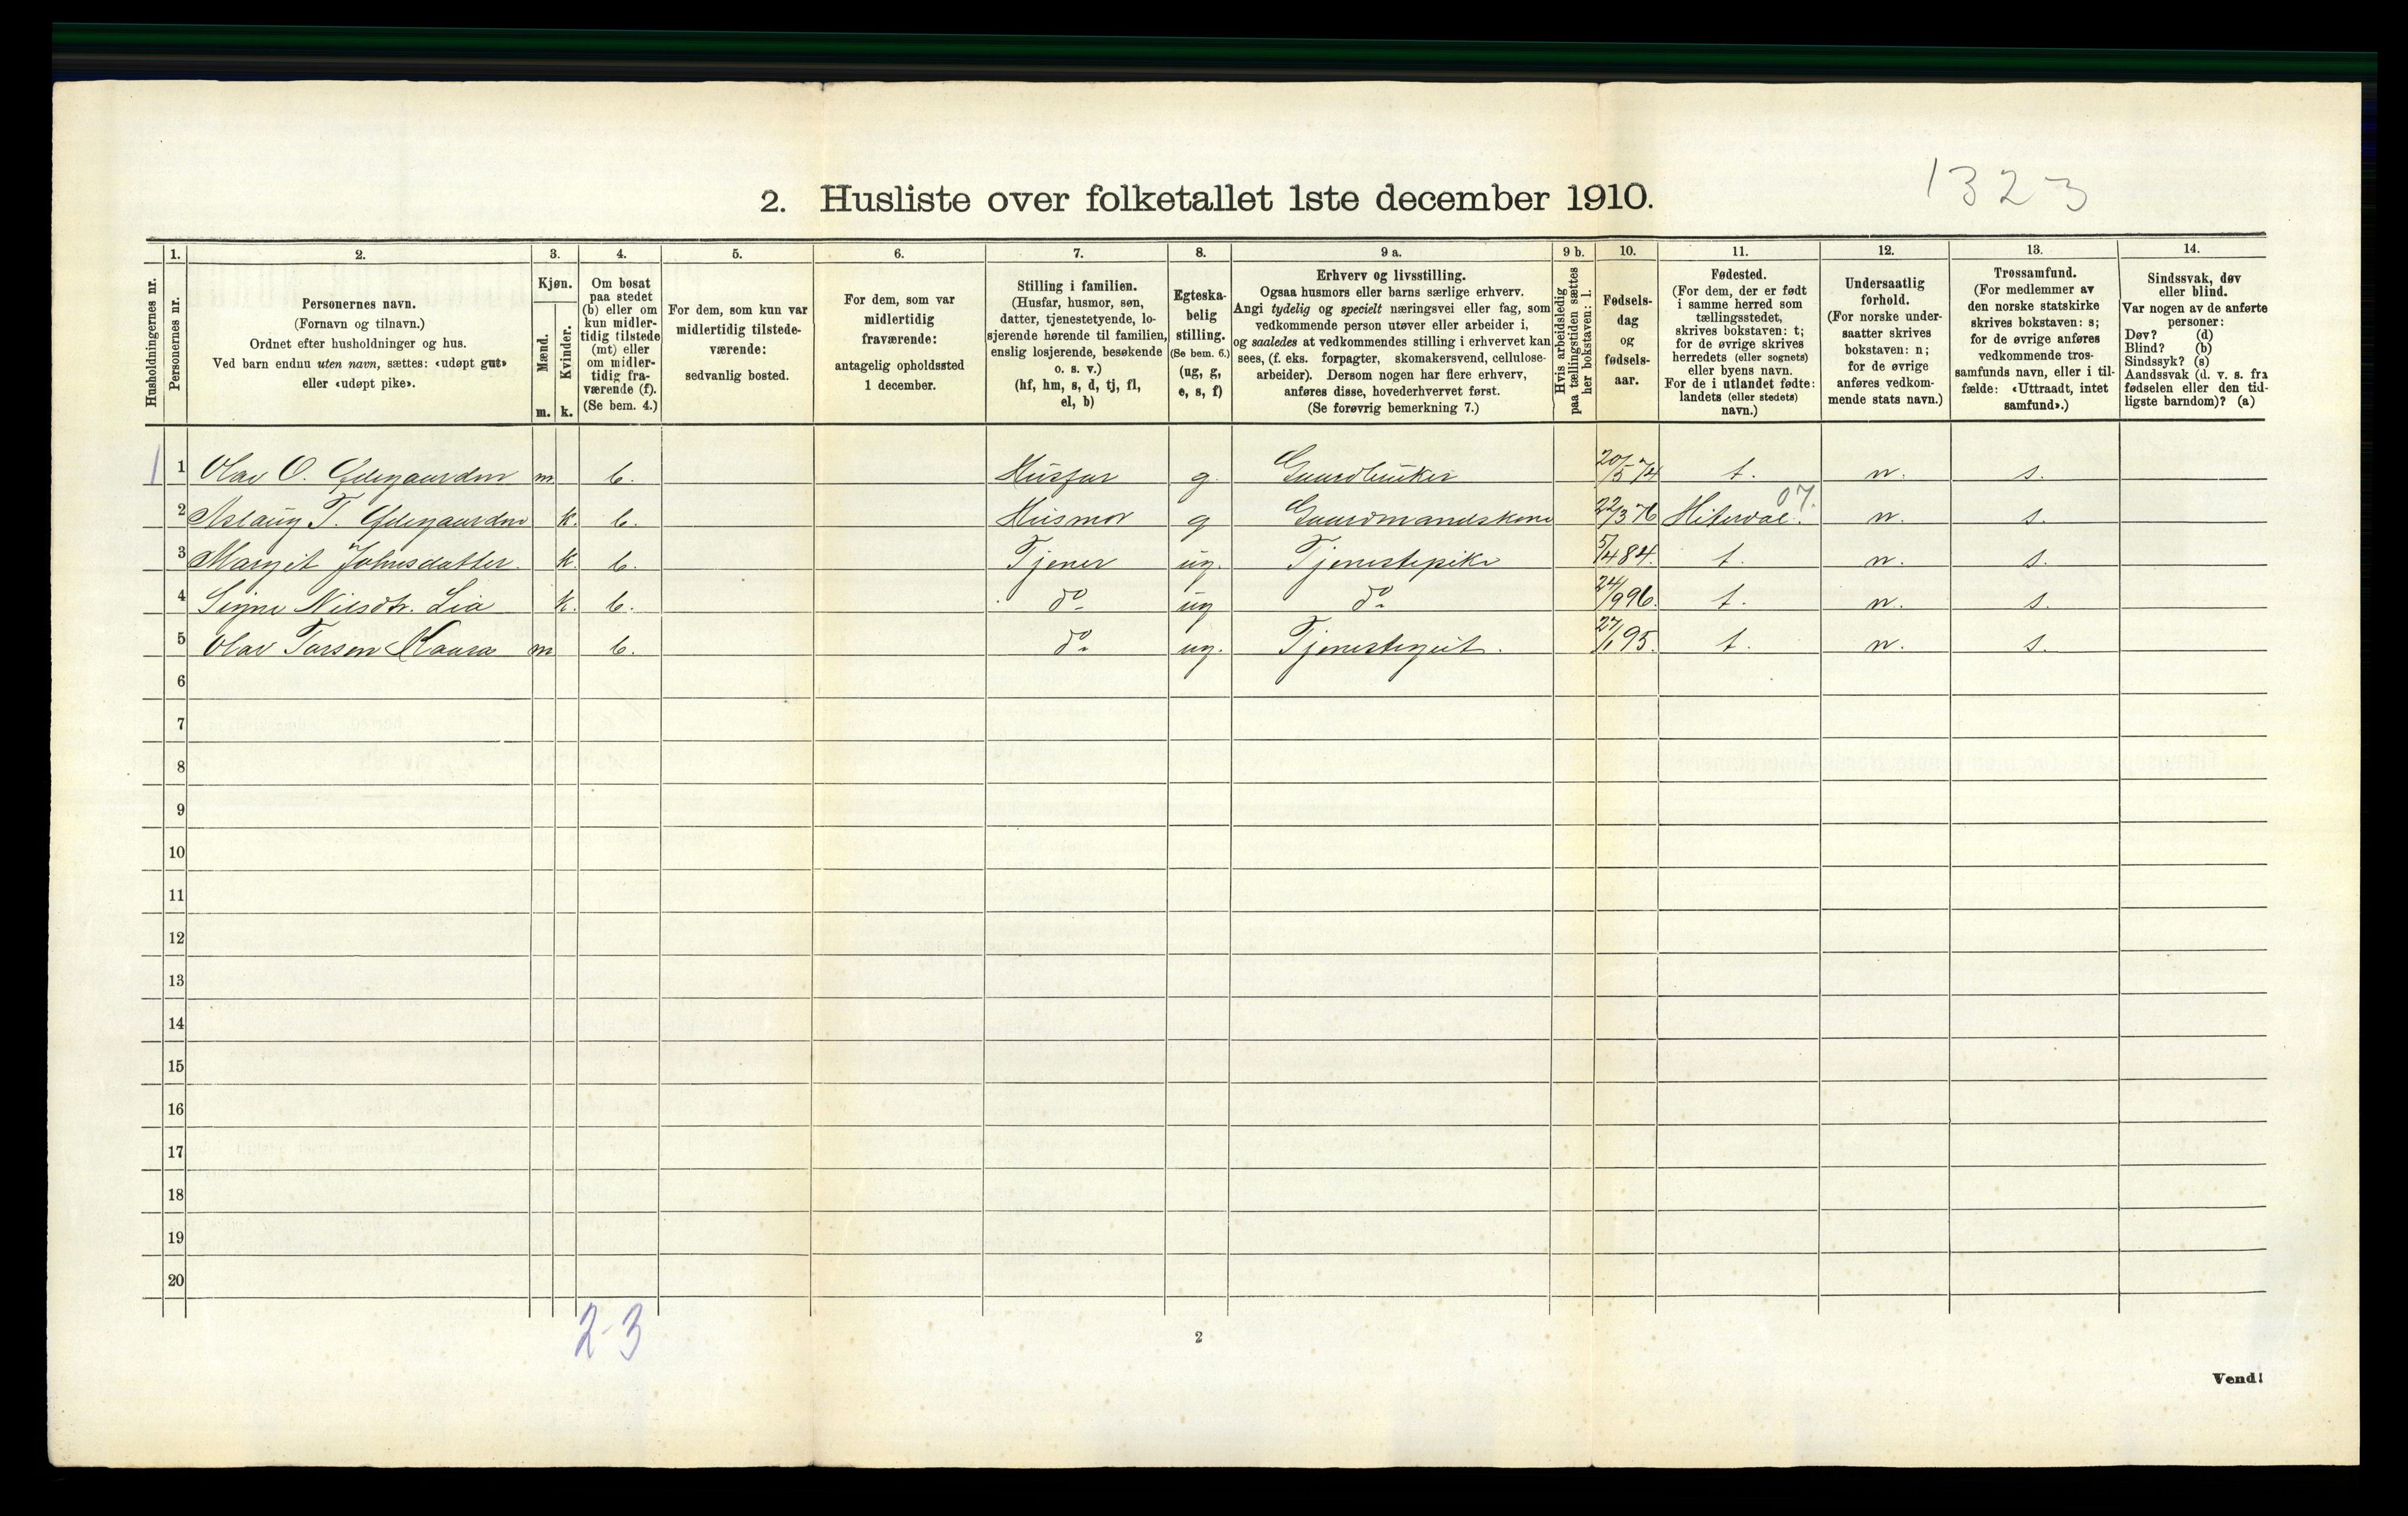 1323
2. Husliste over folketallet 1ste december 1910.
Husholdningernes nr.
1. Personernes nr.
2. Personernes navn.
(Fornavn og tilnavn.)
Ordnet efter husholdninger og hus.
Ved barn endnu uten navn, sættes: «udøpt gut»
eller «udøpt pike».
3. Kjøn.
Mænd. m.
Kvinder. k.
4. Om bosat
paa stedet
(b) eller om
kun midler-
tidig tilstede
(mt) eller
om midler-
tidig fra-
værende (f).
(Se bem. 4.)
5. For dem, som kun var
midlertidig tilstede-
værende:
sedvanlig bosted.
6. For dem, som var
midlertidig
fraværende:
antagelig opholdssted
1 december.
7. Stilling i familien.
(Husfar, husmor, søn,
datter, tjenestetyende, lo-
sjerende hørende til familien,
enslig losjerende, besøkende
o. s. v.)
(hf, hm, s, d, tj, fl,
el, b)
8. Egteska-
belig
stilling.
(Se bem. 6.)
(ug, g,
e, s, f)
9 a. Erhverv og livsstilling.
Ogsaa husmors eller barns særlige erhverv.
Angi tydelig og specielt næringsvei eller fag, som
vedkommende person utøver eller arbeider i,
og saaledes at vedkommendes stilling i erhvervet kan
sees, (f. eks. forpagter, skomakersvend, cellulose-
arbeider). Dersom nogen har flere erhverv,
anføres disse, hovederhvervet først.
(Se forøvrig bemerkning 7.)
9 b. Hvis arbeidsledig
paa tællingstiden sættes
her bokstaven: l.
10. Fødsels-
dag
og
fødsels-
aar.
11. Fødested.
(For dem, der er født
i samme herred som
tællingsstedet,
skrives bokstaven: t;
for de øvrige skrives
herredets (eller sognets)
eller byens navn.
For de i utlandet fødte:
landets (eller stedets)
navn.)
12. Undersaatlig
forhold.
(For norske under-
saatter skrives
bokstaven: n;
for de øvrige
anføres vedkom-
mende stats navn.)
13. Trossamfund.
(For medlemmer av
den norske statskirke
skrives bokstaven: s;
for de øvrige anføres
vedkommende tros-
samfunds navn, eller i til-
fælde: «Uttraadt, intet
samfund».)
14. Sindssvak, døv
eller blind.
Var nogen av de anførte
personer:
Døv? (d)
Blind? (b)
Sindssyk? (s)
Aandssvak (d. v. s. fra
fødselen eller den tid-
ligste barndom)? (a)
1 1 Olav O. Ødegaarden m b. Husfar g. Gaardbruker 20/5 74 t. n. s.
2 Aslaug T. Ødegaarden k. b. Husmor g Gaardmandskone 22/3 76 Hiterdal. 07. n. s.
3 Margit Johnsdatter. k. b. Tjener ug. Tjenestepike 5/4 84. t. n. s.
4 Signe Nilsdtr. Lia k. b. do ug do 24/9 96. t. n. s.
5 Olav Tarsen Kaasa m b. do ug. Tjenestegut. 27/1 95. t. n. s.
6
7
8
9
10
11
12
13
14
15
16
17
18
19
20
2-3
2
Vend!